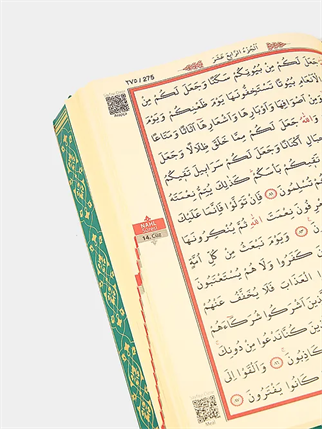 اَلْجُزْءُ الرَّابِعُ عَشَرَ
٢٧٥ / 275
جَعَلَ لَكُمْ مِنْ بُيُوتِكُمْ سَكَنًا وَجَعَلَ لَكُمْ مِنْ
الْاَنْعَامِ بُيُوتًا تَسْتَخِفُّونَهَا يَوْمَ ظَعْنِكُمْ وَيَوْمَ
وَمِنْ اَصْوَافِهَا وَاَوْبَارِهَا وَاَشْعَارِهَٓا اَثَاثًا وَمَتَاعًا
وَاللّٰهُ جَعَلَ لَكُمْ مِمَّا خَلَقَ ظِلَالًا وَجَعَلَ
اَكْنَانًا وَجَعَلَ لَكُمْ سَرَابِيلَ تَقِيكُمُ
تَقِيكُمْ بَأْسَكُمْ كَذٰلِكَ يُتِمُّ نِعْمَتَهُ
تُسْلِمُونَ ﴿٨١﴾ فَاِنْ تَوَلَّوْا فَاِنَّمَا عَلَيْكَ
نِعْمَتَ اللّٰهِ ثُمَّ يُنْكِرُونَهَا
﴿٨٣﴾ وَيَوْمَ نَبْعَثُ مِنْ كُلِّ اُمَّةٍ
كَفَرُوا وَلَا هُمْ يُسْتَعْتَبُونَ
الْعَذَابَ فَلَا يُخَفَّفُ عَنْهُمْ
اَشْرَكُوا شُرَكَٓاءَهُمْ
كُنَّا نَدْعُوا مِنْ دُونِكَ
﴿٨٦﴾ وَاَلْقَوْا اِلَى
كَانُوا يَفْتَرُونَ ﴿٨٧﴾
NAHL
14. Cüz
Meal